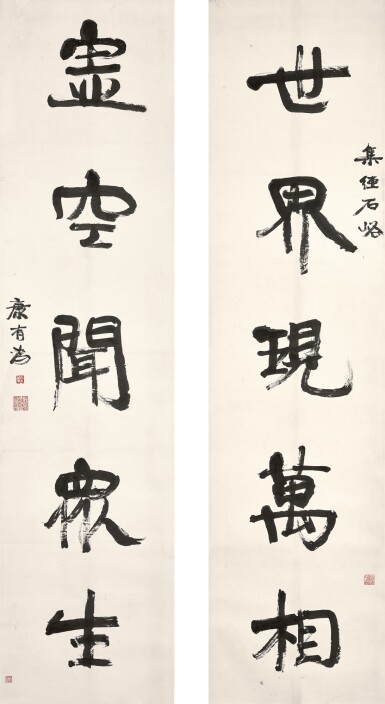 集經石峪
世界現萬相
虛空聞眾生
康有為